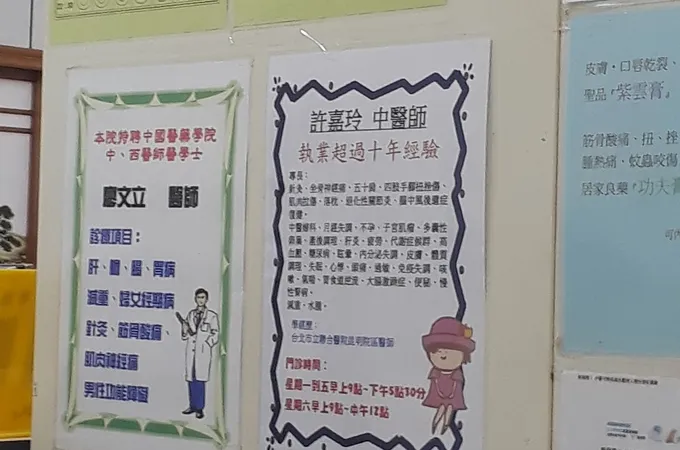 本院特聘中國醫藥學院
中、西醫師醫學士
廖文立 醫師
診療項目：
肝、腸、胃病
減重、婦女經期病
針灸、筋骨酸痛、
肌肉神經痛
男性功能障礙
許嘉玲 中醫師
執業超過十年經驗
專長：
針灸、坐骨神經痛、五十肩、四肢手腳扭挫傷、
肌肉拉傷、落枕、退化性關節炎、腦中風後遺症
復健。
中醫婦科、月經失調、不孕、子宮肌瘤、多囊性
卵巢、產後調理、肝炎、疲勞、代謝症候群、高
血壓、糖尿病、眩暈、內分泌失調、皮膚、體質
調理、失眠、心悸、頭痛、過敏、免疫失調、咳
嗽、氣喘、胃食道逆流、大腸激躁症、便秘、慢
性腎病。
減重、水腫。
學經歷：
台北市立聯合醫院昆明院區醫師
門診時間：
星期一到五早上9點-下午5點30分
星期六早上9點-中午12點
皮膚、口唇乾裂、
聖品『紫雲膏』
筋骨酸痛、扭、挫
腫熱痛、蚊蟲咬傷
居家良藥『功夫膏